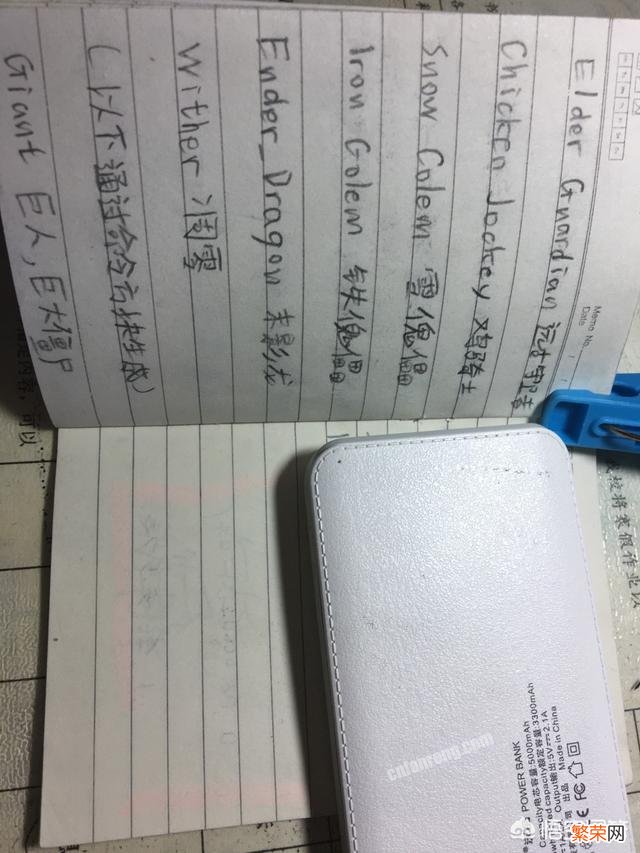 Memo No.
Date
Elder Guardian 远古守卫者
Chicken Jockey 鸡骑士
Snow Golem 雪傀儡
Iron Golem 铁傀儡
Ender_Dragon 末影龙
Wither 凋零
(以下通过命令方块生成)
Giant 巨人,巨大僵尸
POWER BANK
Capacity电芯容量:5000mAh
capacity额定容量:3300mAh
Output输出:5V⎓2.1A
出品 Made in China
FC
cnfanrong.com
繁荣网